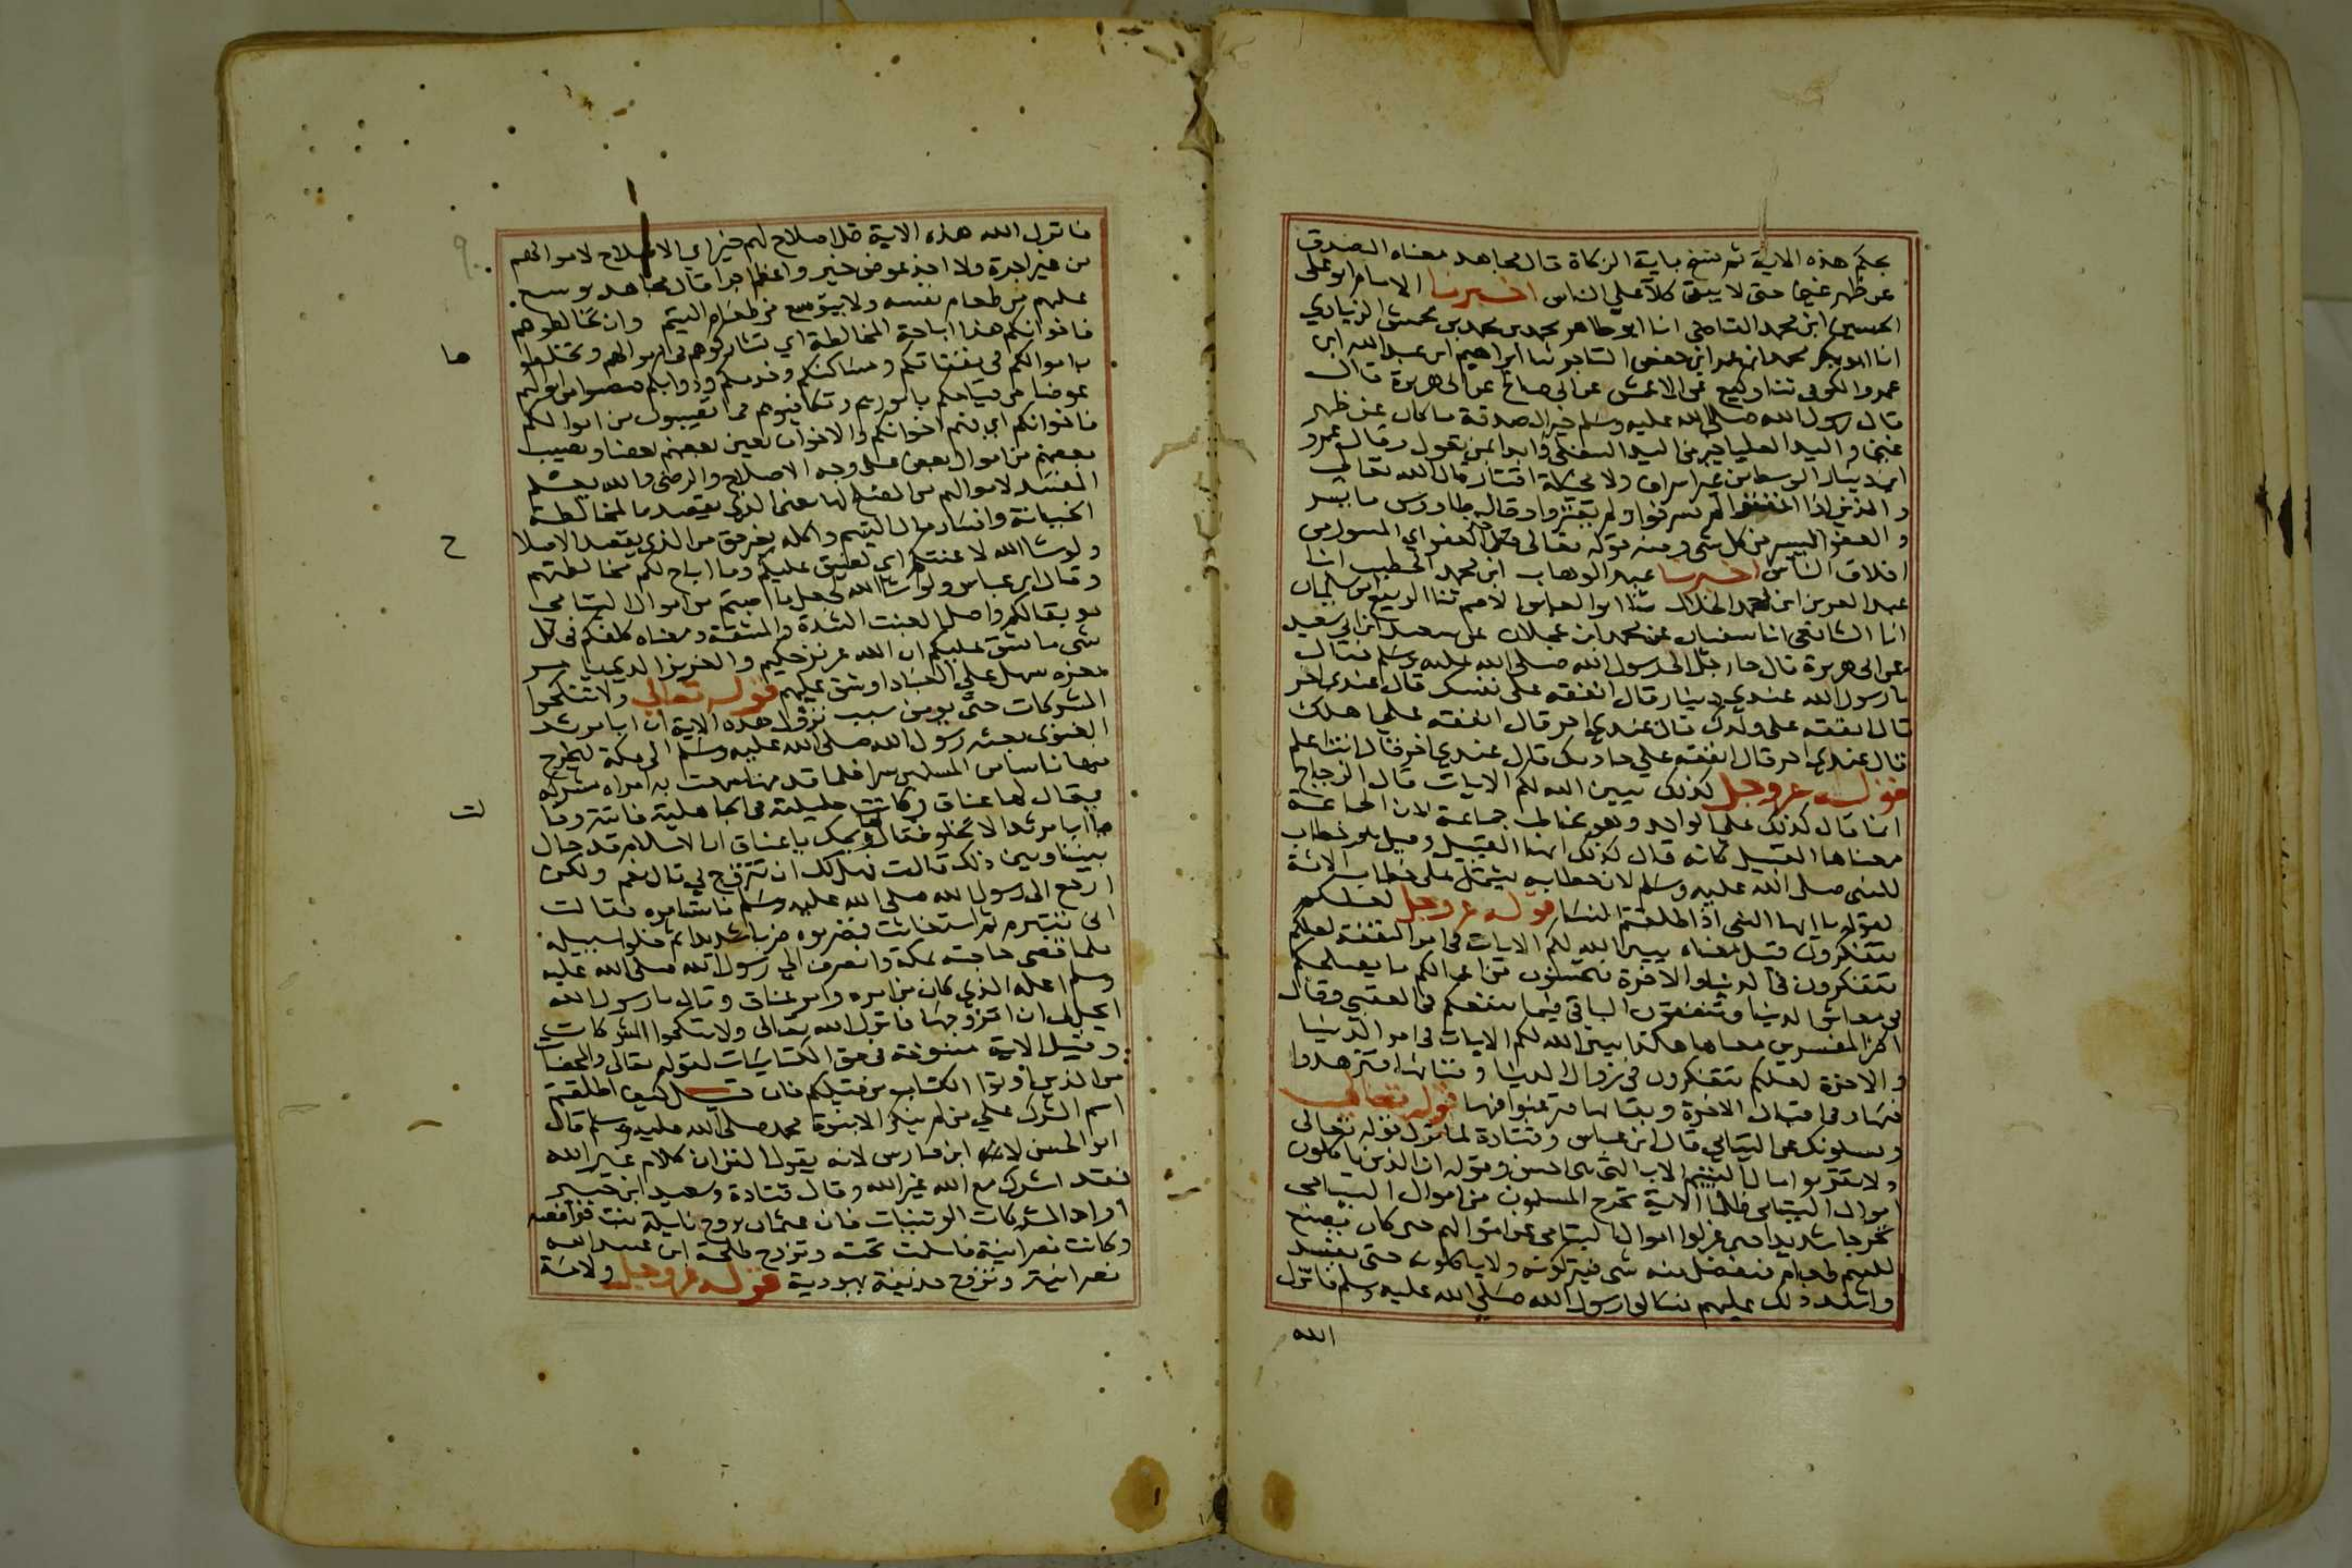 بحكم هذه الاية ثم نسخ باية الزكاة قال مجاهد معناه التصدق
عن ظهر غني حتى لا يبقى كلا على الناس اخبرنا الامام ابو على
الحسين ابن محمد القاضى انا ابو طاهر محمد بن محمد بن محمش الزيادي
انا ابو بكر محمد ابن عمر ابن حفص التاجر ثنا ابراهيم ابن عبد الله ابن
عمرو الكوفى ثنا وكيع عن الاعمش عن ابى صالح عن ابى هريرة قال
قال رسول الله صلى الله عليه وسلم خير الصدقة ما كان عن ظهر
غني و اليد العليا خير من اليد السفلى وابدا بمن تعول وقال عمرو
ابن دينار الوسط من غير اسراف ولا اقتار قال الله تعالى
والذين اذا انفقوا لم يسرفوا ولم يقتروا وقال طاوس ما يسر
و العفو اليسر من كل شى ومنه قوله تعالى خذ العفو اي الميسور من
اخلاق الناس اخبرنا عبد الوهاب ابن محمد الخطيب انا
عبد العزيز ابن احمد الخلال ثنا ابو العباس الاصم ثنا الربيع ابن سليمان
انا الشافعى انا سفيان عن محمد ابن عجلان عن سعيد ابن ابي سعيد
عن ابى هريرة قال جا رجل الى رسول الله صلى الله عليه وسلم فقال
يا رسول الله عندي دينار قال انفقه على نفسك قال عندي اخر
قال انفقه على ولدك قال عندي اخر قال انفقه على اهلك
قال عندي اخر قال انفقه علي خادمك قال عندي اخر قال انت اعلم
قوله عز وجل كذلك يبين الله لكم الايات قال الزجاج
انما قال كذلك على الواحد وهو يخاطب جماعة لان الجماعة
معناها القبيل كانه قال كذلك ايها القبيل وقيل هو خطاب
للنبى صلى الله عليه وسلم لان خطابه يشتمل على خطاب الامة
لقوله يا ايها النبى اذا طلقتم النسا قوله عز وجل لعلكم
تتفكرون قيل معناه يبين الله لكم الايات فى امر النفقة لعلكم
تتفكرون فى الدنيا والاخرة فتحبسون من اموالكم ما يصلحكم
فى معاش الدنيا وتنفقون الباقي فيما ينفعكم فى العقبي وقال
اكثر المفسرين معناها هكذا يبين الله لكم الايات فى امر الدنيا
والاخرة لعلكم تتفكرون فى زوال الدنيا وفنائها فتزهدوا
فيها وفى اقبال الاخرة وبقائها فترغبوا فيها قوله تعالى
ويسلونك عن اليتامي قال ابن عباس وقتادة لما نزل قوله تعالى
ولا تقربوا مال اليتيم الا بالتى هى احسن وقوله ان الذين ياكلون
اموال اليتامى ظلما الاية تحرج المسلمون من اموال اليتامى
تحرجا شديدا حتى عزلوا اموال اليتامى عن اموالهم حتى كان يصنع
لليتيم طعام فيفضل منه شى فيتركونه ولا ياكلونه حتى يفسد
واشتد ذلك عليهم فسالوا رسول الله صلى الله عليه وسلم فانزل
الله
فانزل الله هذه الاية قل اصلاح لهم خير اي الاصلاح لاموالهم
من غير اجرة ولا اخذ عوض خير واعظم اجرا قال مجاهد يوسع
عليهم من طعام نفسه ولا يتوسع من طعام اليتيم وان تخالطوهم
فاخوانكم هذا اباحة المخالطة اي تشاركوهم فى اموالهم وتخلطوا
ها
باموالكم فى نفقاتكم ومساكنكم وخدمكم ودوابكم من اموالهم
عوضا من قيامكم بامورهم وتكافيوهم مما تصيبون من اموالكم
فاخوانكم اي فهم اخوانكم والاخوان يعين بعضهم بعضا ويصيب
بعضهم من اموال بعض على وجه الاصلاح والرضى والله يعلم
المفسد لاموالهم من المصلح لها يعنى الذى يقصد بالمخالطة
الخيانة وافساد مال اليتيم واكله بغير حق من الذي يقصد الاصلا
ح
ولو شا الله لاعنتكم اى لضيق عليكم وما اباح لكم مخالطتهم
وقال ابن عباس ولو شا الله لجعل ما اصبتم من اموال اليتامى
موبقا لكم واصل العنت الشدة والمشقة ومعناه كلفكم فى كل
شى ما يشق عليكم ان الله عزيز حكيم والعزيز الذي يامر
بعزة سهل على العباد او شق عليهم قوله تعالى ولا تنكحوا
المشركات حتى يومن سبب نزول هذه الاية ان ابا مرثد
الغنوى بعثه رسول الله صلى الله عليه وسلم الى مكة ليخرج
منها ناسا من المسلمين سرا فلما قدمها سمعت به امراة مشركه
يقال لها عناق وكانت خليلته فى الجاهلية فاتته وقا
لت
يا ابا مرثد الا تخلو فقال لها ويحك يا عناق ان الاسلام قد حال
بيننا وبين ذلك قالت فهل لك ان تتزوج بى قال نعم ولكن
ارجع الى رسول الله صلى الله عليه وسلم فاستامره فقالت
ابى تتبرم ثم استغاثت فضربوه ضربا شديدا ثم خلوا سبيله
فلما قضى حاجته بمكة وانصرف الي رسول الله صلى الله عليه
وسلم اعلمه الذي كان من امره وامر عناق وقال يا رسول الله
ايحل لى ان اتزوجها فانزل الله تعالى ولا تنكحوا المشركات
وقيل الاية منسوخة فى حق الكتابيات لقوله تعالى والمحصنات
من الذين اوتوا الكتاب من قبلكم فان قيل كيف اطلقتم
اسم الشرك علي من لم ينكر الا نبوة محمد صلى الله عليه وسلم قال
ابو الحسن ابن فارس لانه يقول القران كلام غير الله
فقد اشرك مع الله غير الله وقال قتادة وسعيد ابن جبير
اراد المشركات الوثنيات فان عثمان تزوج نايلة بنت فرافصه
وكانت نصرانية فاسلمت تحته وتزوج طلحة ابن عبيد الله
نصرانية وتزوج حذيفة يهودية قوله عز وجل ولامة